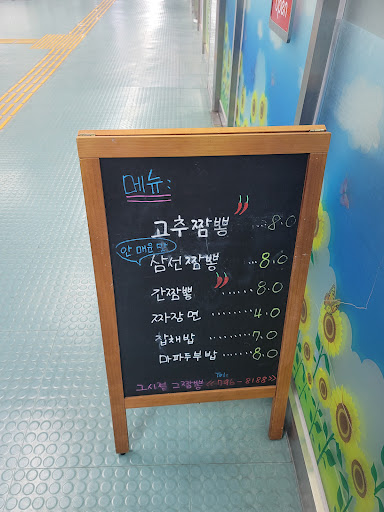 open
메뉴:
고추짬뽕 ...8.0
안 매운 맛
삼선짬뽕 ...8.0
간짬뽕 ......8.0
짜장면 ......4.0
잡채밥 ......7.0
마파두부밥 ......8.0
Tel:
그시절 그짬뽕 ☎796-8188>>